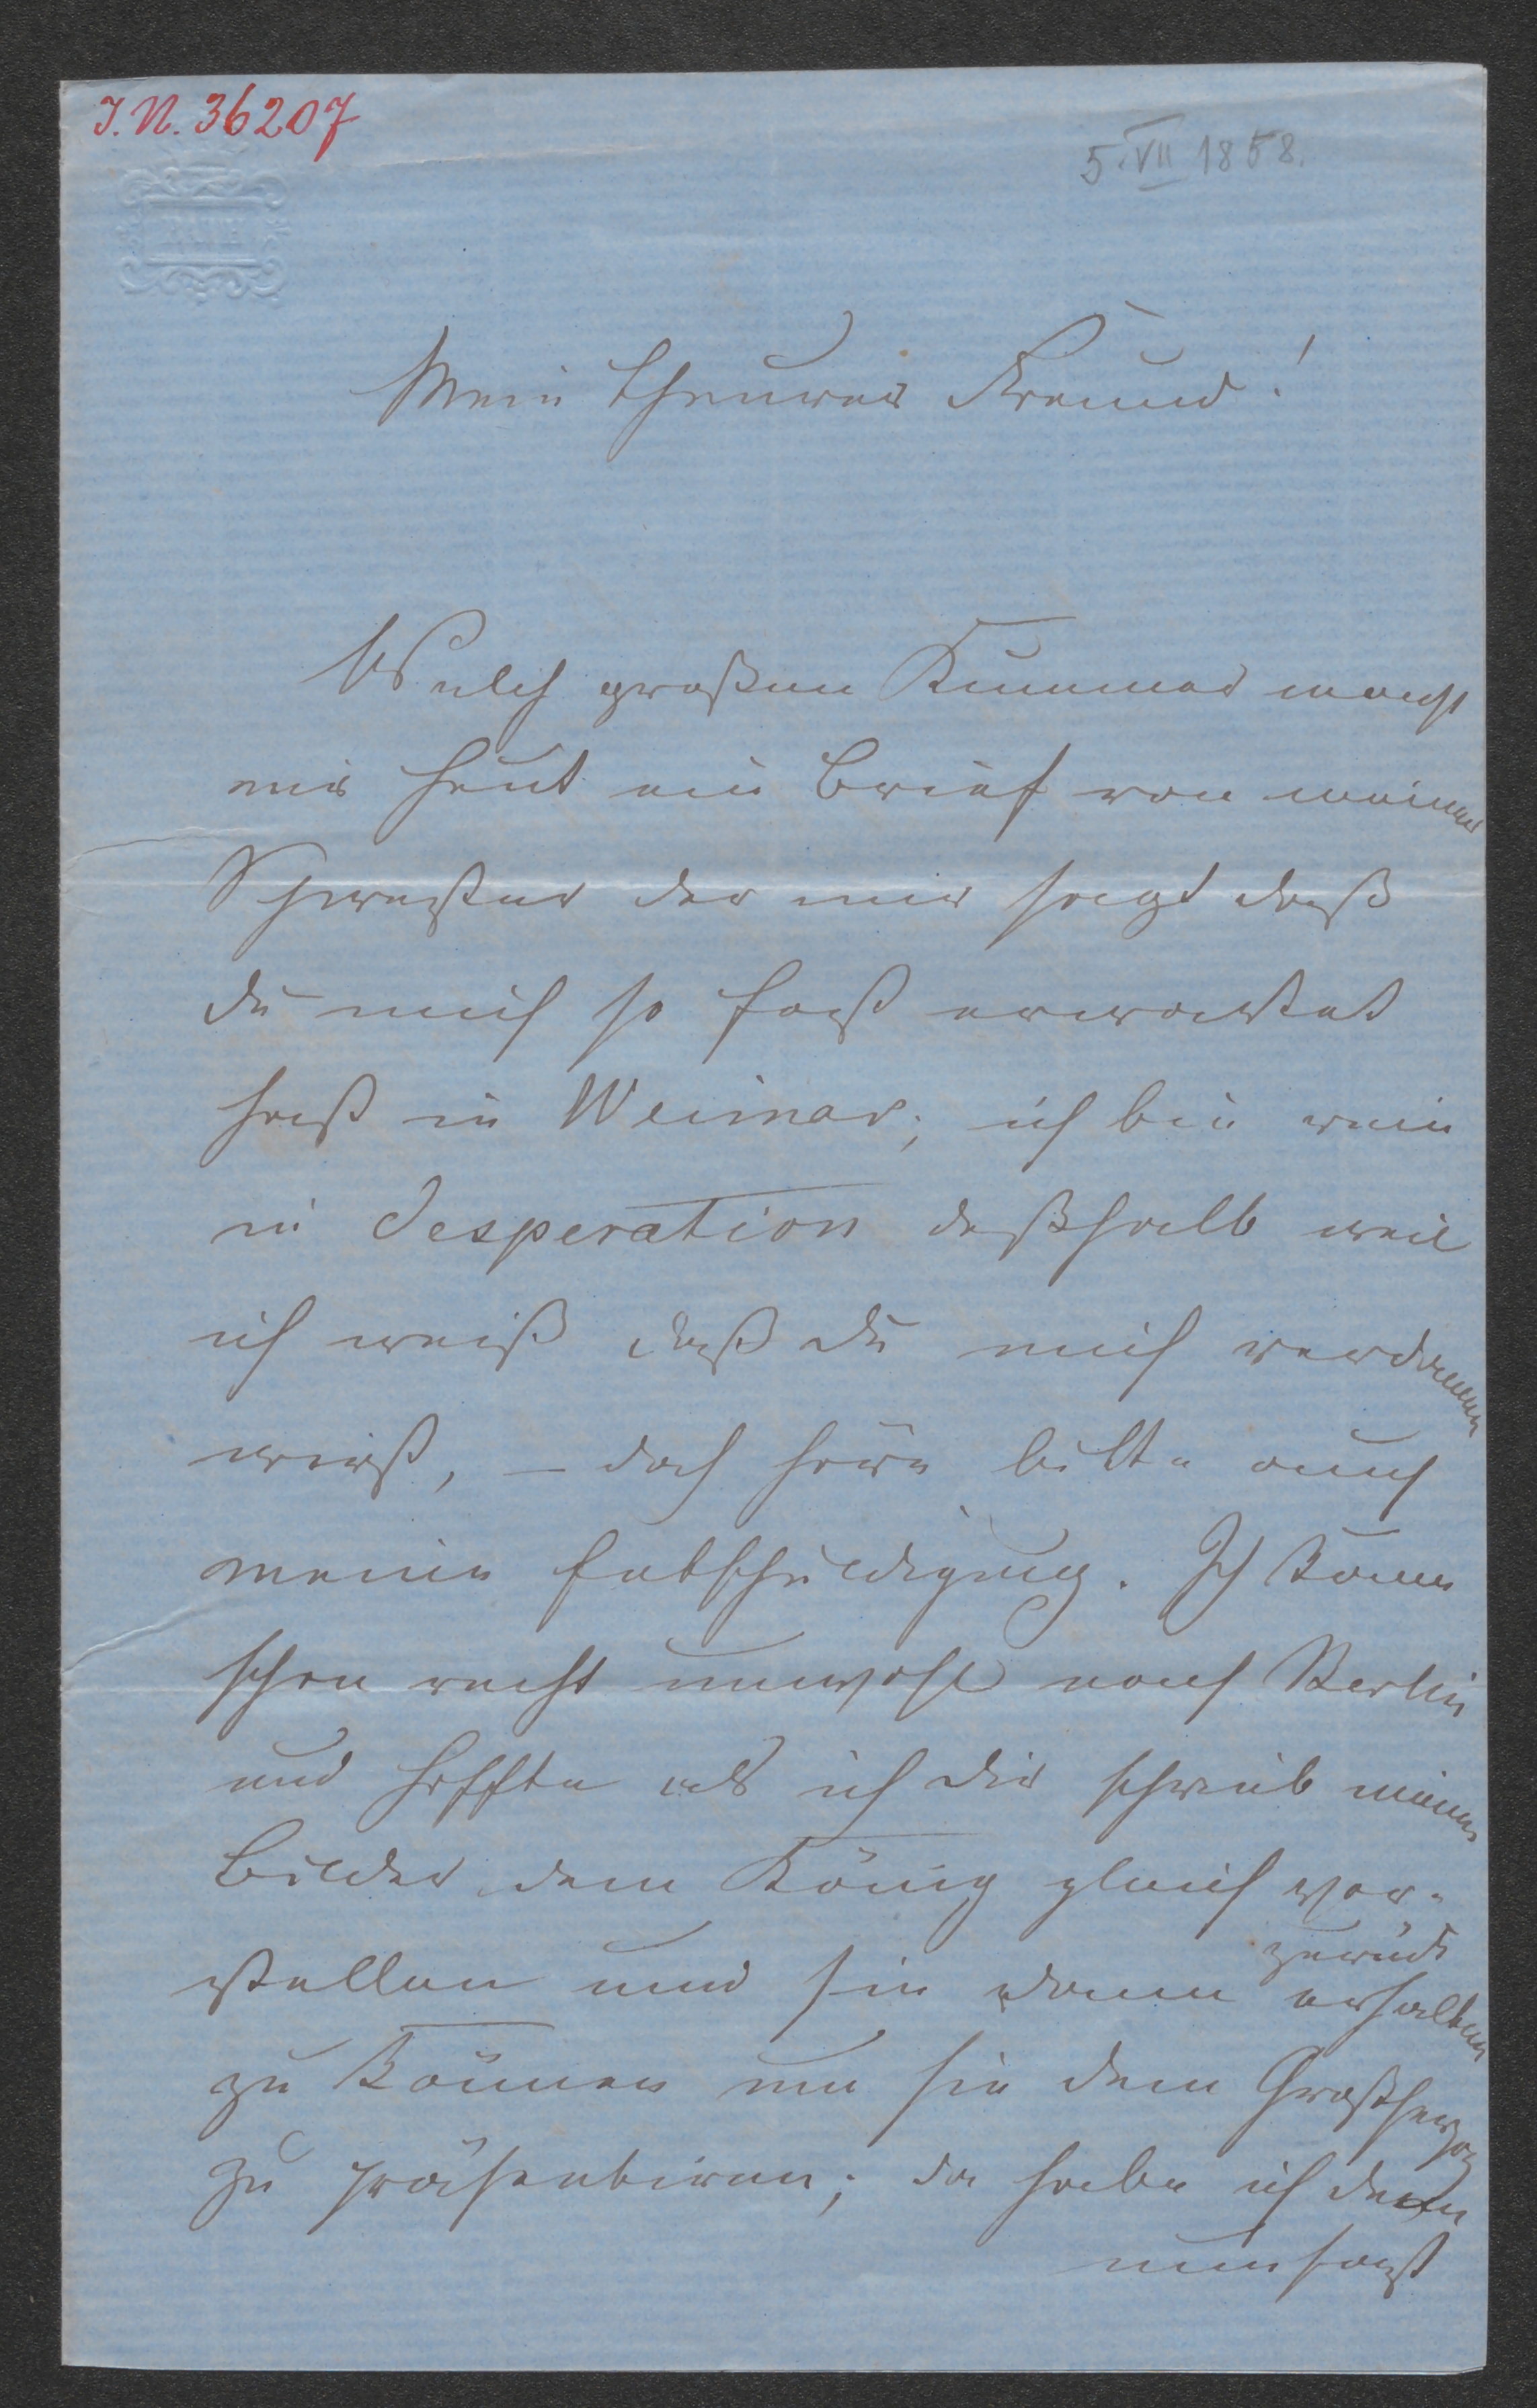 J. N. 36207
5. VII 1858.
Mein theurer Freund!
Welch großen Kummer macht
mir heut ein Brief von meiner
Schwester der mir sagt daß
du mich so fest erwartet
hast in Weimar; ich bin rein
in Desperation deßhalb weil
ich weiß daß du mich verdammen
wirst, – doch höre bitte auch
meine Entschuldigung. Ich kam
schon recht unwohl nach Berlin
und hoffte als ich dir schrieb meine
Bilder dem König gleich vor-
stellen und sie dann zurück erhalten
zu können um sie dem Großherzog
zu präsentiren; da habe ich denn
nun fast